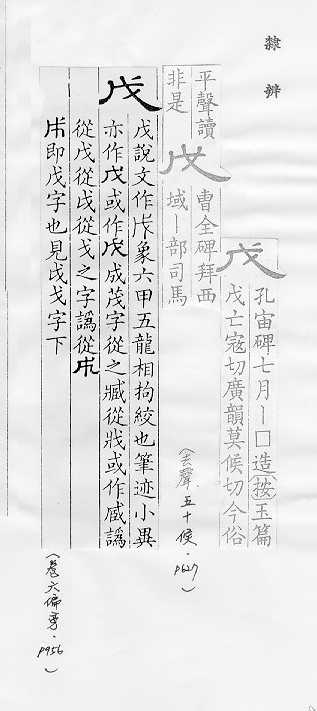 隸辨
戊
孔宙碑七月丨囗造按玉篇
戊亡寇切廣韻莫候切今俗
平聲讀
非是
戊
曹全碑拜西
域丨部司馬
(去聲.五十候.P627)
戊
戊說文作戊象六甲五龍相拘絞也筆迹小異
亦作戊或作戊成茂字從之臧從戕或作臧譌
從戊從戌從戈之字譌從
即戊字也見戌戈字下
(卷六偏旁.P956)